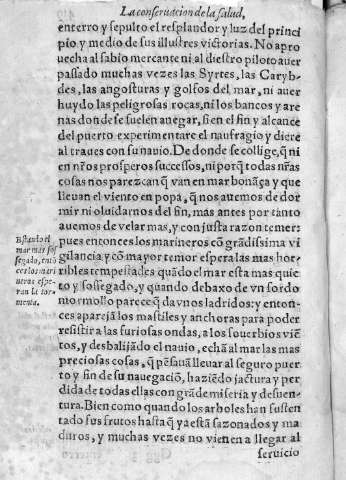 La conseruacion de la salud,
enterro y sepulto el resplandor y luz del princi
pio y medio de sus illustres victorias. No apro
uecha al sabio mercante ni al diestro piloto auer
passado muchas vezes las Syrtes, las Caryb-
des, las angosturas y golfos del mar, ni auer
huydo las peligrosas rocas, ni los bancos y are
nas donde se suelen anegar, si en el fin y alcance
del puerto experimentare el naufragio y diere
al traues con su nauio. De donde se collige, q̃ ni
en nr̃os prosperos successos, ni porq̃ todas nr̃as
cosas nos parezcan q̃ van en mar bonãça y que
lleuan el viento en popa, q̃ nos auemos de dor
mir ni oluidarnos del fin, mas antes por tanto
auemos de velar mas, y con justa razon temer:
pues entonces los marineros cõ grãdissima vi
gilancia y cõ mayor temor esperã las mas hor-
ribles tempestades quãdo el mar esta mas quie
to y sossegado, y quando debaxo de vn sordo
mormollo parece q̃ da vnos ladridos: y enton-
ces aparejã los mastiles y anchoras para poder
resistir a las furiosas ondas, a los souerbios viẽ
tos, y desbalijãdo el nauio, echã al mar las mas
preciosas cosas, q̃ pẽsauã lleuar al seguro puer
to y fin de su nauegaciõ, haziẽdo jactura y per
dida de todas ellas con grãde miseria y desuen-
tura. Bien como quando los arboles han susten
tado sus frutos hasta q̃ ya estã sazonados y ma
duros, y muchas vezes no vienen a llegar al
seruicio
Estando el
mar mas sos
segado, entõ
ces los mari
neros espe-
ran la tor-
menta.